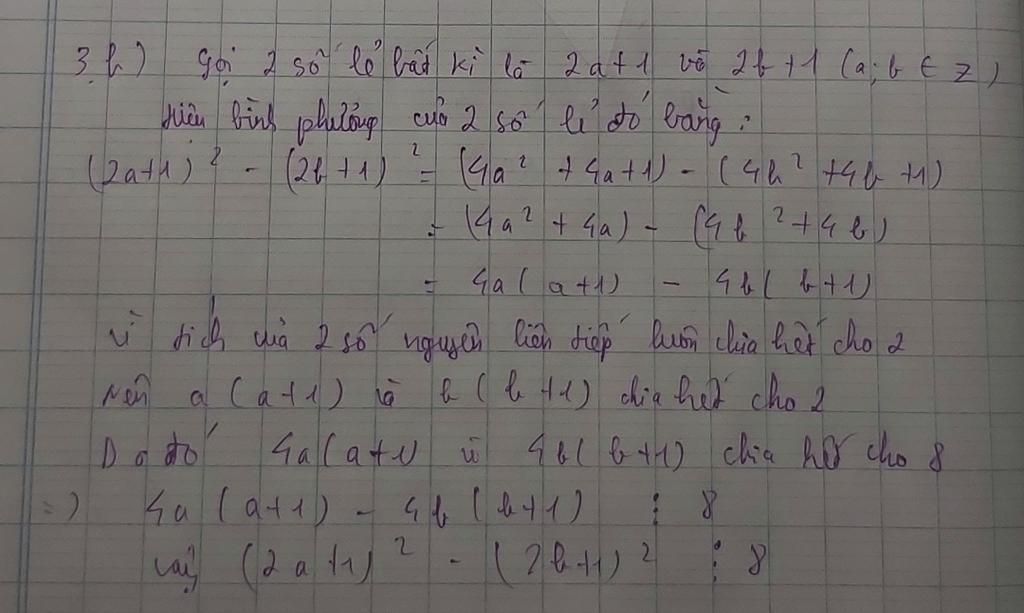 3.b) Gọi 2 số lẻ bất kì là 2a+1 và 2b+1 (a;b ∈ Z)
Hiệu bình phương của 2 số lẻ đó bằng:
(2a+1)² - (2b+1)² = (4a² + 4a+1) - (4b² +4b +1)
= (4a² + 4a) - (4b² + 4b)
= 4a(a+1) - 4b(b+1)
Vì tích của 2 số nguyên liên tiếp luôn chia hết cho 2
Nên a(a+1) và b(b+1) chia hết cho 2
Do đó 4a(a+1) và 4b(b+1) chia hết cho 8
=) 4a(a+1) - 4b(b+1) ⋮ 8
Vậy (2a+1)² - (2b+1)² ⋮ 8